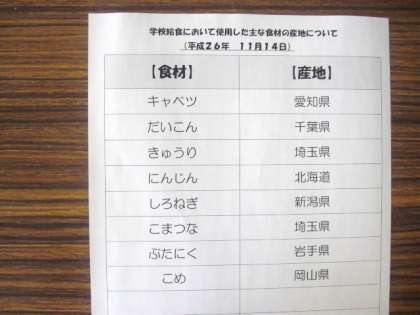 学校給食において使用した主な食材の産地について
(平成26年 11月14日)
【食材】 【産地】
キャベツ 愛知県
だいこん 千葉県
きゅうり 埼玉県
にんじん 北海道
しろねぎ 新潟県
こまつな 埼玉県
ぶたにく 岩手県
こめ 岡山県